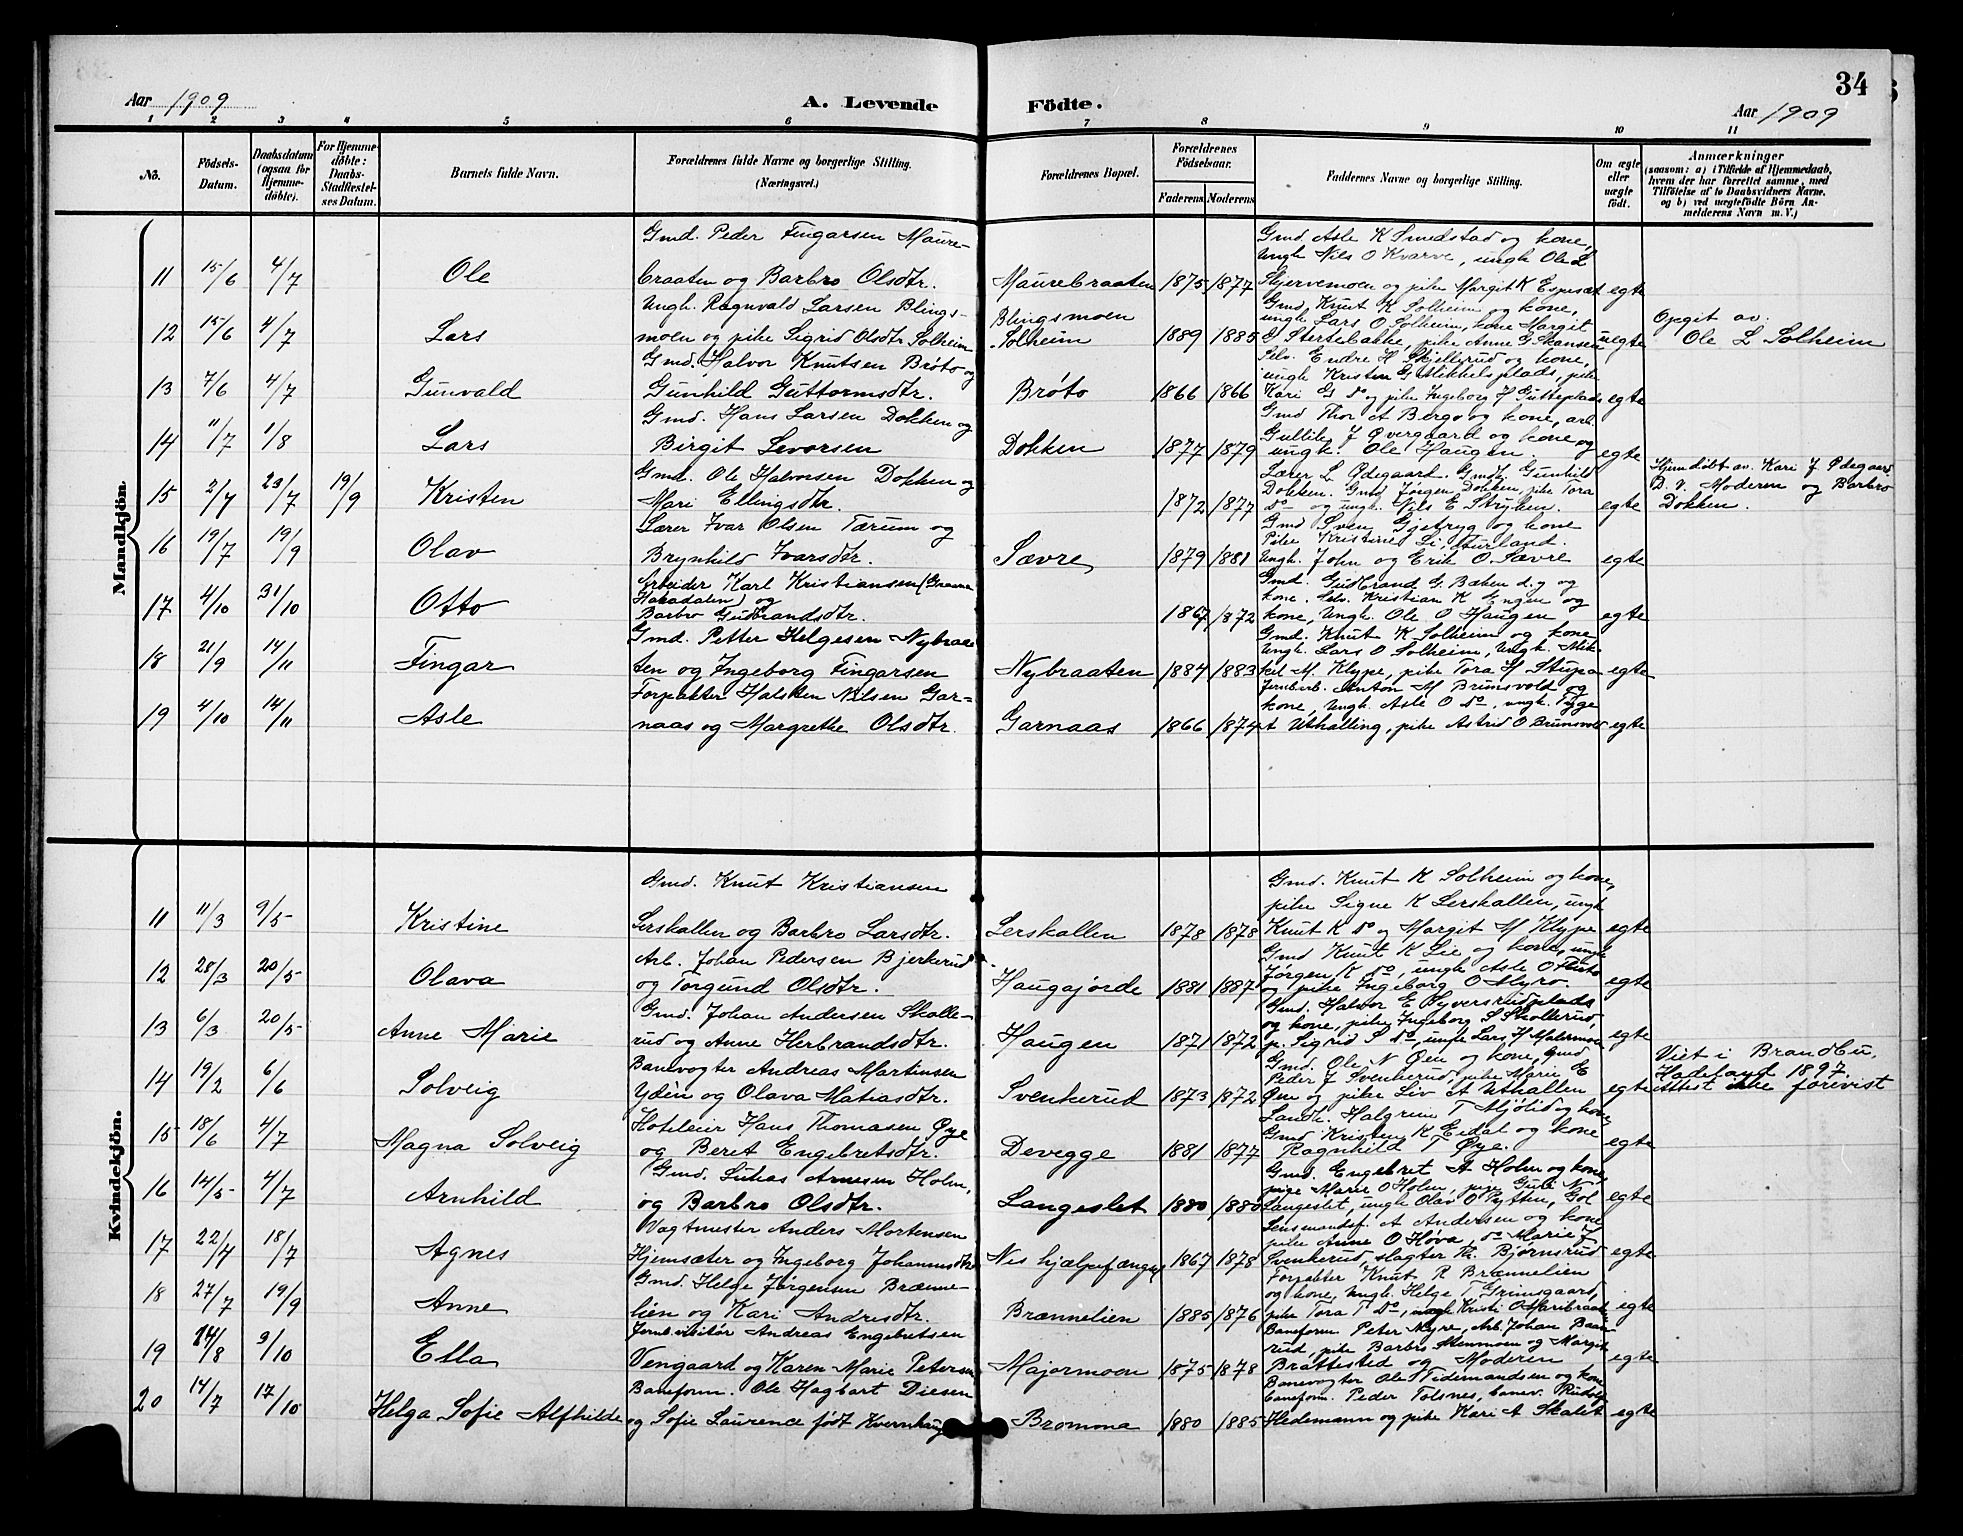 34
Aar 1909 A. Levende Födte. Aar 1909
1 2 3 4 5 6 7 8 9 10 11
No. Födsels-Datum. Daabsdatum (ogsaa for Hjemmedöbte). For Hjemmedöbte: Daabs-Stadfæstelses Datum. Barnets fulde Navn. Forældrenes fulde Navne og borgerlige Stilling. (Næringsvei.) Forældrenes Bopæl. Forældrenes Födselsaar. Faderens Moderens Faddernes Navne og borgerlige Stilling. Om ægte eller uægte födt. Anmærkninger (saasom: a) i Tilfælde af Hjemmedaab, hvem der har forrettet samme, med Tilföielse af to Daabsvidners Navne, og b) ved uægtefödte Börn Anmelderens Navn m. V.)
Mandkjön.
Gmd. Peder Fingarsen Maure- Gmd Asle K Smedstad og kone,
Ungk Nils O Kvarve, ungk Ole L
11 15/6 4/7 Ole braaten og Barbro Olsdtr. Maurebraaten 1875 1877 Skjervemoen og pike Margit K Espeset egte
Ungk. Ragnvald Larsen Blings- Blingsmoen Gmd Knut K Solheim og kone,
ungk Lars O Solheim, kone Margit Opgit av.
12 15/6 4/7 Lars moen og pike Sigrid Olsdtr. Solheim Solheim 1889 1885 Stertebakke, pike Anne G Skansen uegte Ole L Solheim
Gmd. Halvor Knutsen Bröto og Selv. Endre H Skjellerud og kone,
ungk Kristen G Mikkelsplads, pike
13 7/6 4/7 Gunvald Gunhild Guttormsdtr. Bröto 1866 1866 Kari G do og pike Ingeborg H Gutteplads egte
Gmd. Hans Larsen Dokken og Gmd Thor A Bergo og kone, arb.
Gullik J Øvergaard og kone og
14 11/7 1/8 Lars Birgit Levorsen Dokken 1877 1879 ungk. Ole Haugen. egte
Gmd. Ole Halvorsen Dokken og Lærer L Ødegaard. Gmdk Gunhild Hjemdöbt av. Kari J Ødegaard
Dokken. Gmd Jørgen Dokken, pike Tora D. v. Moderen og Barbro
15 2/7 23/7 19/9 Kristen Mari Ellingsdtr. 1872 1877 do og ungk. Nils E Stryken. egte Dokken.
Lærer Ivar Olsen Tærum og Gmd Sven Gjetryg og kone
Pike Kristine Li, Aurland.
16 19/7 19/9 Olav Brynhild Ivarsdtr. Sævre 1879 1881 Ungk. John og Erik O. Sævre egte
Arbeider Karl Kristiansen (Graane Gmd. Gudbrand G. Bæken d.y og
Hakadalen) og kone. Selv. Kristian K Engen og
17 4/10 31/10 Otto Barbro Gudbrandsdtr. 1867 1872 kone, Ungk. Ole O Haugen egte
Gmd. Petter Helgesen Nybraa- Gmd. Knut K Solheim og kone
Ungk. Lars O Solheim, Ungk. Mik-
18 21/9 14/11 Fingar ten og Ingeborg Fingarsen Nybraaten 1884 1883 kel M. Klype, pike Tora H Stupa egte
Forpakter Halsten Nilsen Gar- Jernbarb. Anton M Brunsvold og
kone, Ungk. Asle O do, ungk. Tygge
19 4/10 14/11 Asle naas og Margrethe Olsdtr. Garnaas 1866 1874 A Uthalling, pike Astrid O Brunsvol egte
Kvindekjön.
Gmd. Knut Kristiansen Gmd. Knut K Solheim og kone,
pike Signe K Lerskallen, ungk
11 11/3 9/5 Kristine Lerskallen og Barbro Larsdtr. Lerskallen 1878 1878 Knut K do og Margit M Klype egte
Arb. Johan Pedersen Bjerkerud Gmd Knut K Lie og kone, ungk
Jørgen K do, ungk Asle O Fluto
12 28/3 20/5 Olava og Torgund Olsdtr. Haugajorde 1881 1887 og pike Ingeborg O Myro. egte
Gmd. Johan Andersen Skolle- Gmd. Halvor E Syversrudplads
og kone, pike Ingeborg S Skollerud,
13 6/3 20/5 Anne Marie rud og Anne Herbrandsdtr. Haugen 1871 1872 p. Sigrid S do, ungk Lars H Malermoen egte
Banevogter Andreas Martinsen Gmd. Ole N Øen og kone, Gmd. Viet i Brandbu,
Peder J Svenkerud, pike Marie E Hadeland 1897.
14 19/2 6/6 Solveig Ydén og Olava Matiasdtr. Svenkerud 1873 1872 Øen og pike Liv A Uthallen egte Attest ikke forevist
Hoteleier Hans Thomasen Øye Landh. Halgrim T Mjölid og kone,
Gmd Kristen K Eidal og kone
15 18/6 4/7 Magna Solveig og Beret Engebretsdtr. Devegge 1881 1877 Ragnhild T Øye. egte
Gmd. Lukas Arnesen Holm, Gmd. Engebret A Holm og kone,
pige Marie O Holm, pige Guri N
16 14/5 4/7 Arnhild og Barbro Olsdtr. Langeslet 1880 1880 Langeslet, ungk Olav O Pytten, Gol egte
Vagtmester Anders Mortensen Lensmandsf. A Andersen og kone,
pike Anne O Höva, do Marie J
17 22/4 18/7 Agnes Hjemsæter og Ingeborg Johannsdtr Nes hjælpefængsel 1867 1878 Svenkerud, slagter Th. Bjørnsrud egte
Gmd. Helge Jørgensen Brænne- Forpakter Knut R Brænnelien
og kone, Ungk. Helge T Grimsgaard,
18 27/7 19/9 Anne lien og Kari Andrisdtr. Brænnelien 1885 1876 pike Tora T do, ungk Kristi O Maribraat egte
Jernb.visitör Andreas Engebretsen Baneform. Peter Myre, Arb. Johan Baan-
rud, pike Barbro Stenmoen og Margit
19 14/8 9/10 Ella Vengaard og Karen Marie Petersen Majormoen 1875 1878 Brattested og Moderen egte
Baneform. Ole Hagbart Diesen Banevogter Ole Tidemandsen og kone
baneform. Peder Tolsnes, banev. Rudolf
20 14/7 17/10 Helga Sofie Alfhilde og Sofie Laurence födt Kvernhaug Bromma 1880 1885 Hedemann og pike Kari A Skalet egte